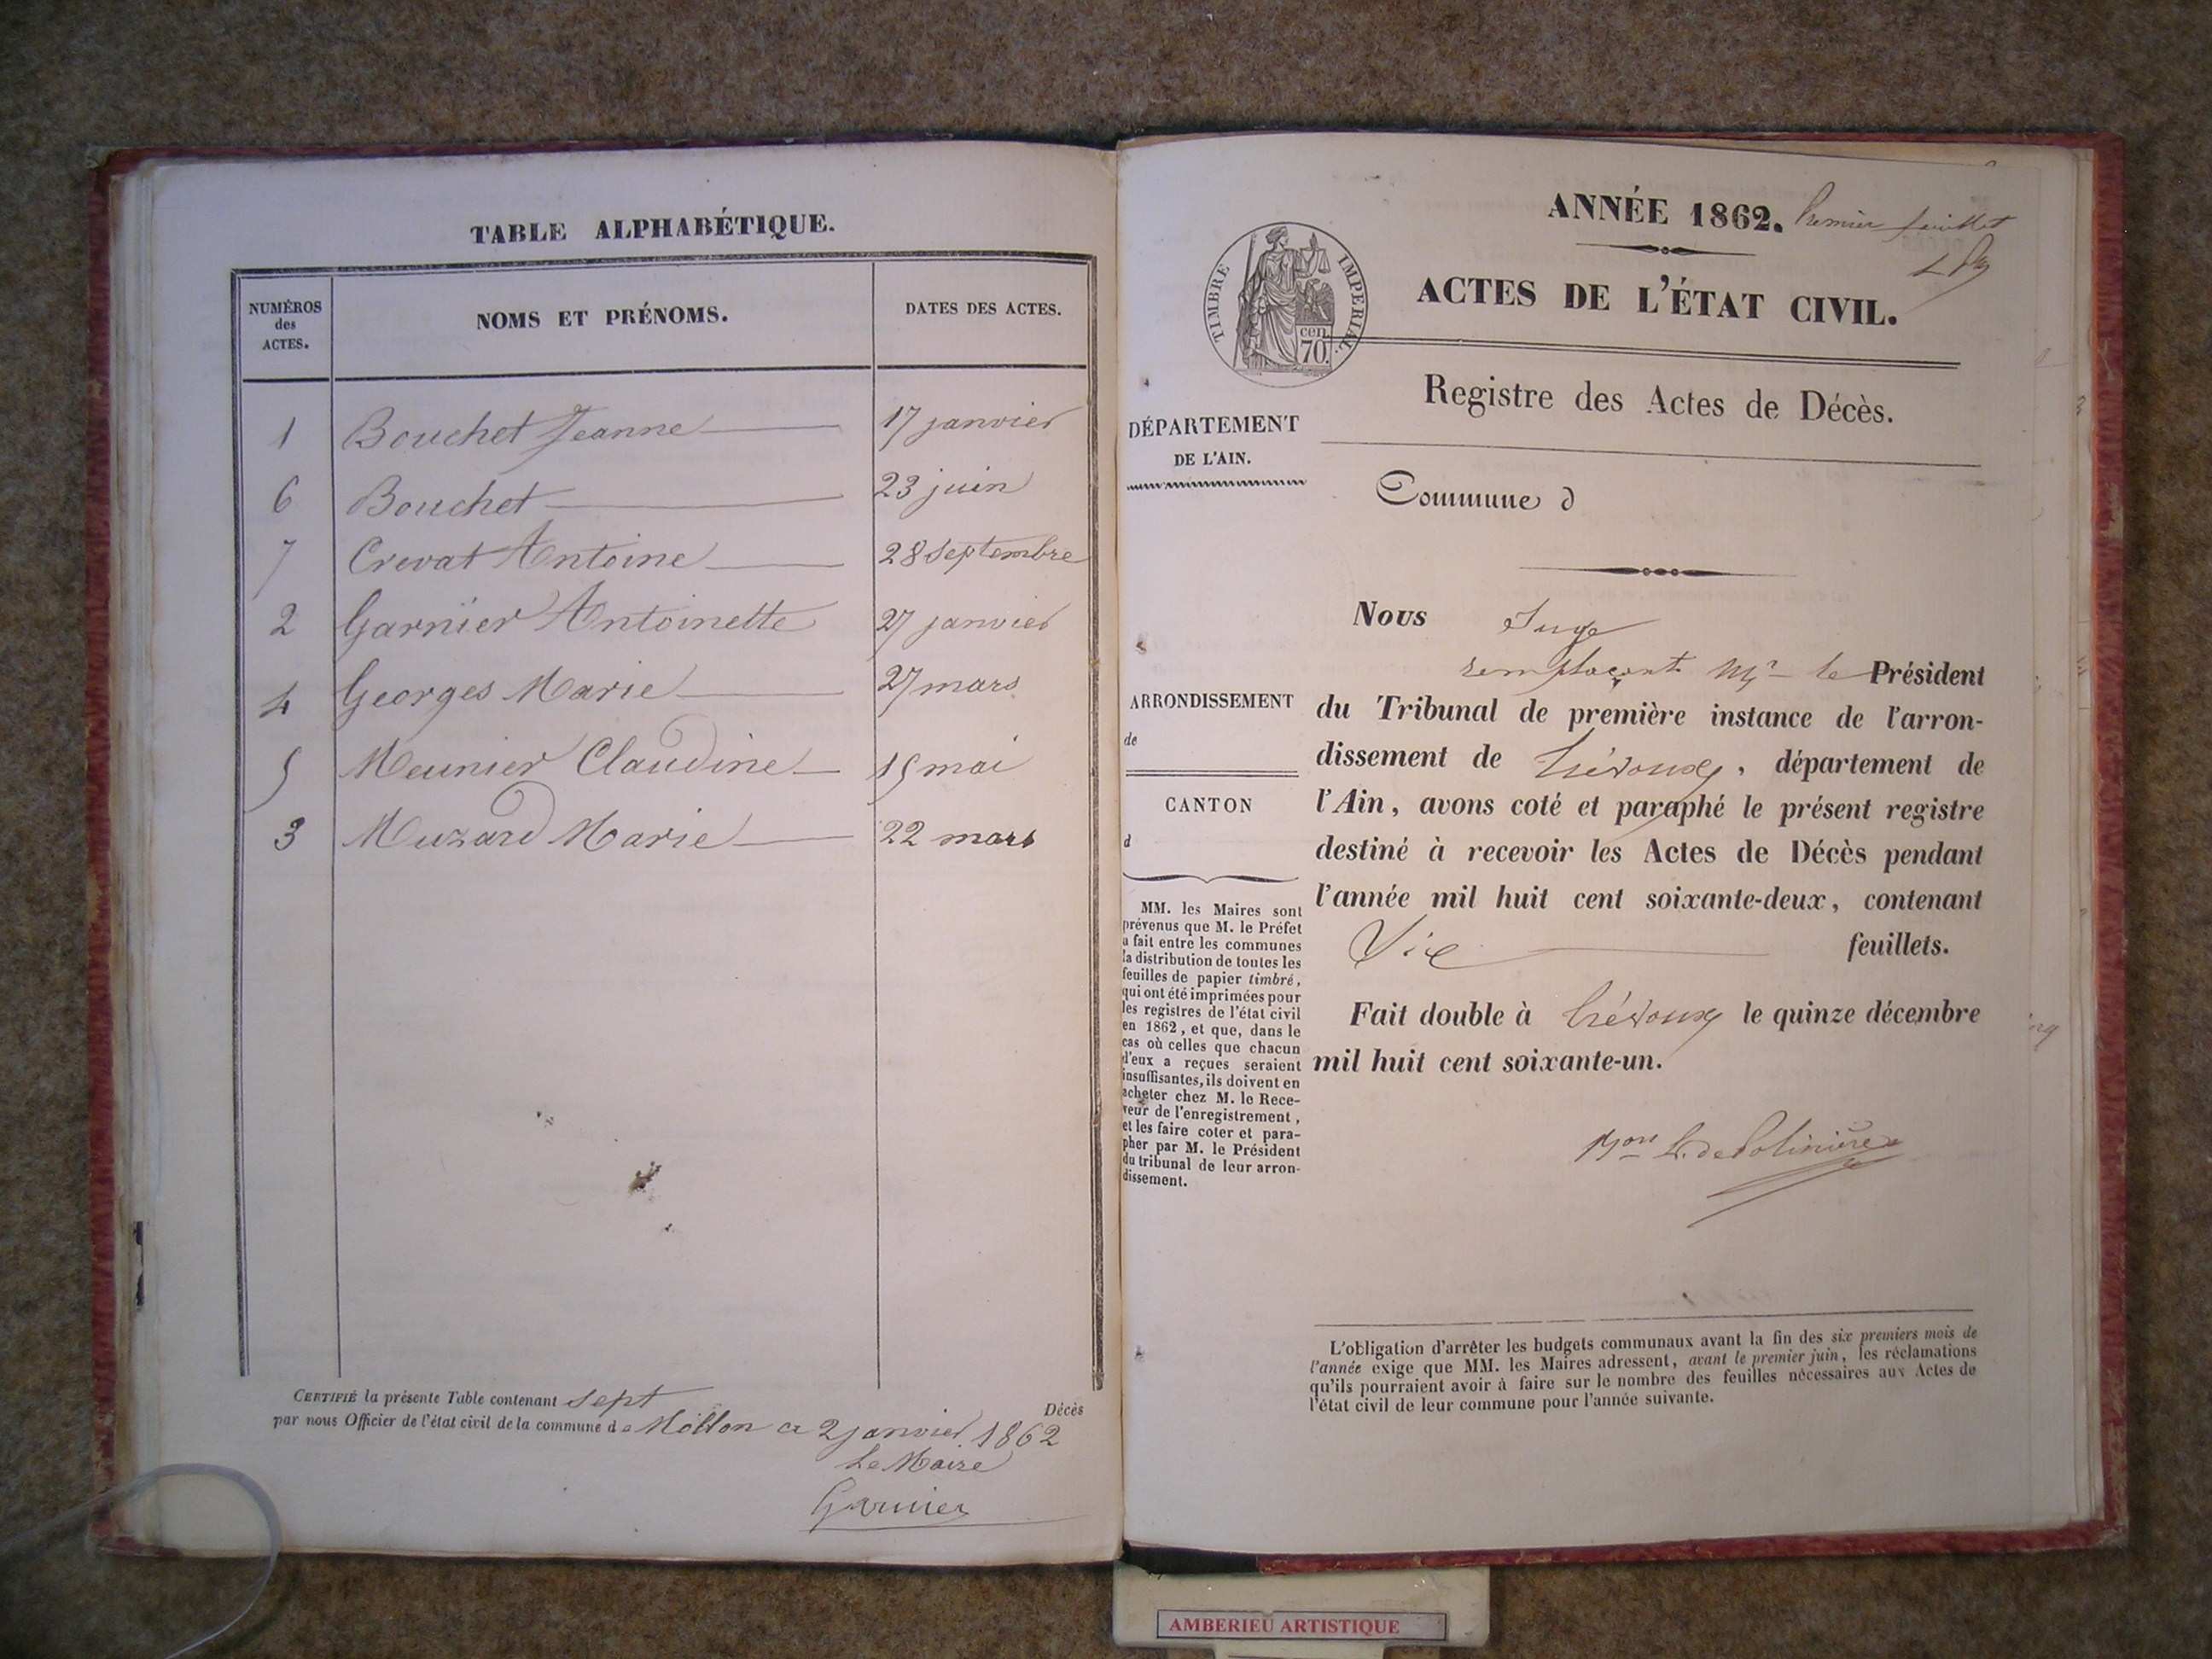 TABLE ALPHABÉTIQUE.
NUMÉROS
des
ACTES.
NOMS ET PRÉNOMS.
DATES DES ACTES.
1 Bouchet Jeanne 17 janvier
6 Bouchet 23 juin
7 Crevat Antoine 28 septembre
2 Garnier Antoinette 27 janvier
4 Georges Marie 27 mars
5 Meunier Claudine 15 mai
3 Muzard Marie 22 mars
CERTIFIÉ la présente Table contenant sept Décès
par nous Officier de l'état civil de la commune de Mollon ce 2 janvier 1862
Le Maire
Garnier
ANNÉE 1862. Premier feuillet
TIMBRE IMPERIAL.
cen.
70.
ACTES DE L'ÉTAT CIVIL.
Registre des Actes de Décès.
DÉPARTEMENT
DE L'AIN.
Commune d
ARRONDISSEMENT
de
CANTON
d
MM. les Maires sont
prévenus que M. le Préfet
a fait entre les communes
la distribution de toutes les
feuilles de papier timbré,
qui ont été imprimées pour
les registres de l'état civil
en 1862, et que, dans le
cas où celles que chacun
d'eux a reçues seraient
insuffisantes, ils doivent en
acheter chez M. le Rece-
veur de l'enregistrement,
et les faire coter et para-
pher par M. le Président
du tribunal de leur arron-
dissement.
Nous Juge
remplaçant Mr le Président
du Tribunal de première instance de l'arron-
dissement de Trévoux, département de
l'Ain, avons coté et paraphé le présent registre
destiné à recevoir les Actes de Décès pendant
l'année mil huit cent soixante-deux, contenant
Six feuillets.
Fait double à Trévoux le quinze décembre
mil huit cent soixante-un.
Bon L. de Polinière
L'obligation d'arrêter les budgets communaux avant la fin des six premiers mois de
l'année exige que MM. les Maires adressent, avant le premier juin, les réclamations
qu'ils pourraient avoir à faire sur le nombre des feuilles nécessaires aux Actes de
l'état civil de leur commune pour l'année suivante.
AMBERIEU ARTISTIQUE